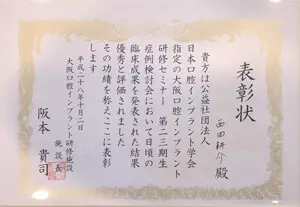 表彰状
西田耕介 殿
貴方は公益社団法人
日本口腔インプラント学会
指定の大阪口腔インプラント
研修セミナー 第二三期生
症例検討会において日頃の
臨床成果を発表された結果
優秀と評価されました
その功績を称えここに表彰
します
平成二十八年十月二日
大阪口腔インプラント研修施設
施設長
阪本貴司